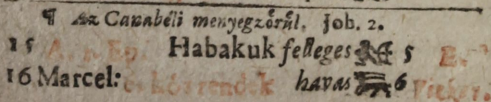 ¶ Az Canabéli menyegzőrűl. Joh. 2.
15 Habakuk felleges 5
16 Marcel: havas 6